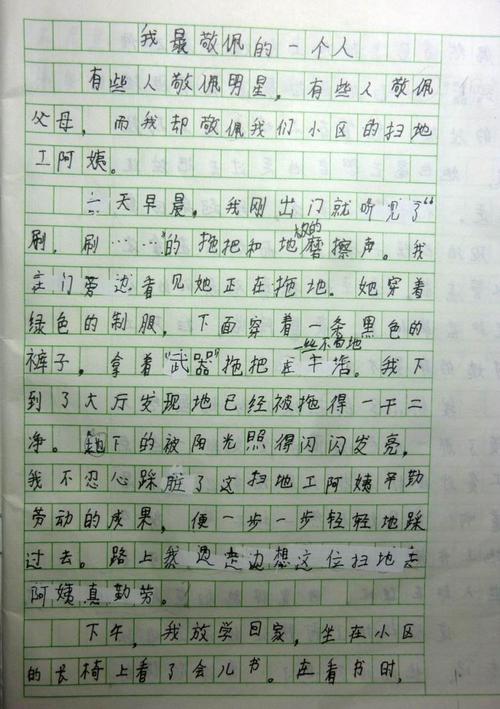 我最敬佩的一个人
有些人敬佩明星，有些人敬佩
父母，而我却敬佩我们小区的扫地
工阿姨。
一天早晨，我刚出门就听见了“
刷，刷……”的拖把和地的磨擦声。我
门旁边看见她正在拖地。她穿着
绿色的制服，下面穿着一条黑色的
裤子，拿着“武器”拖把一丝不苟地干活。我下
到了大厅发现地已经被拖得一干二
净。地下的被阳光照得闪闪发亮，
我不忍心踩脏了这扫地工阿姨辛勤
劳动的成果，便一步一步轻轻地踩
过去。路上我边走边想这位扫地
阿姨真勤劳。
下午，我放学回家，坐在小区
的长椅上看了会儿书。在看书时，